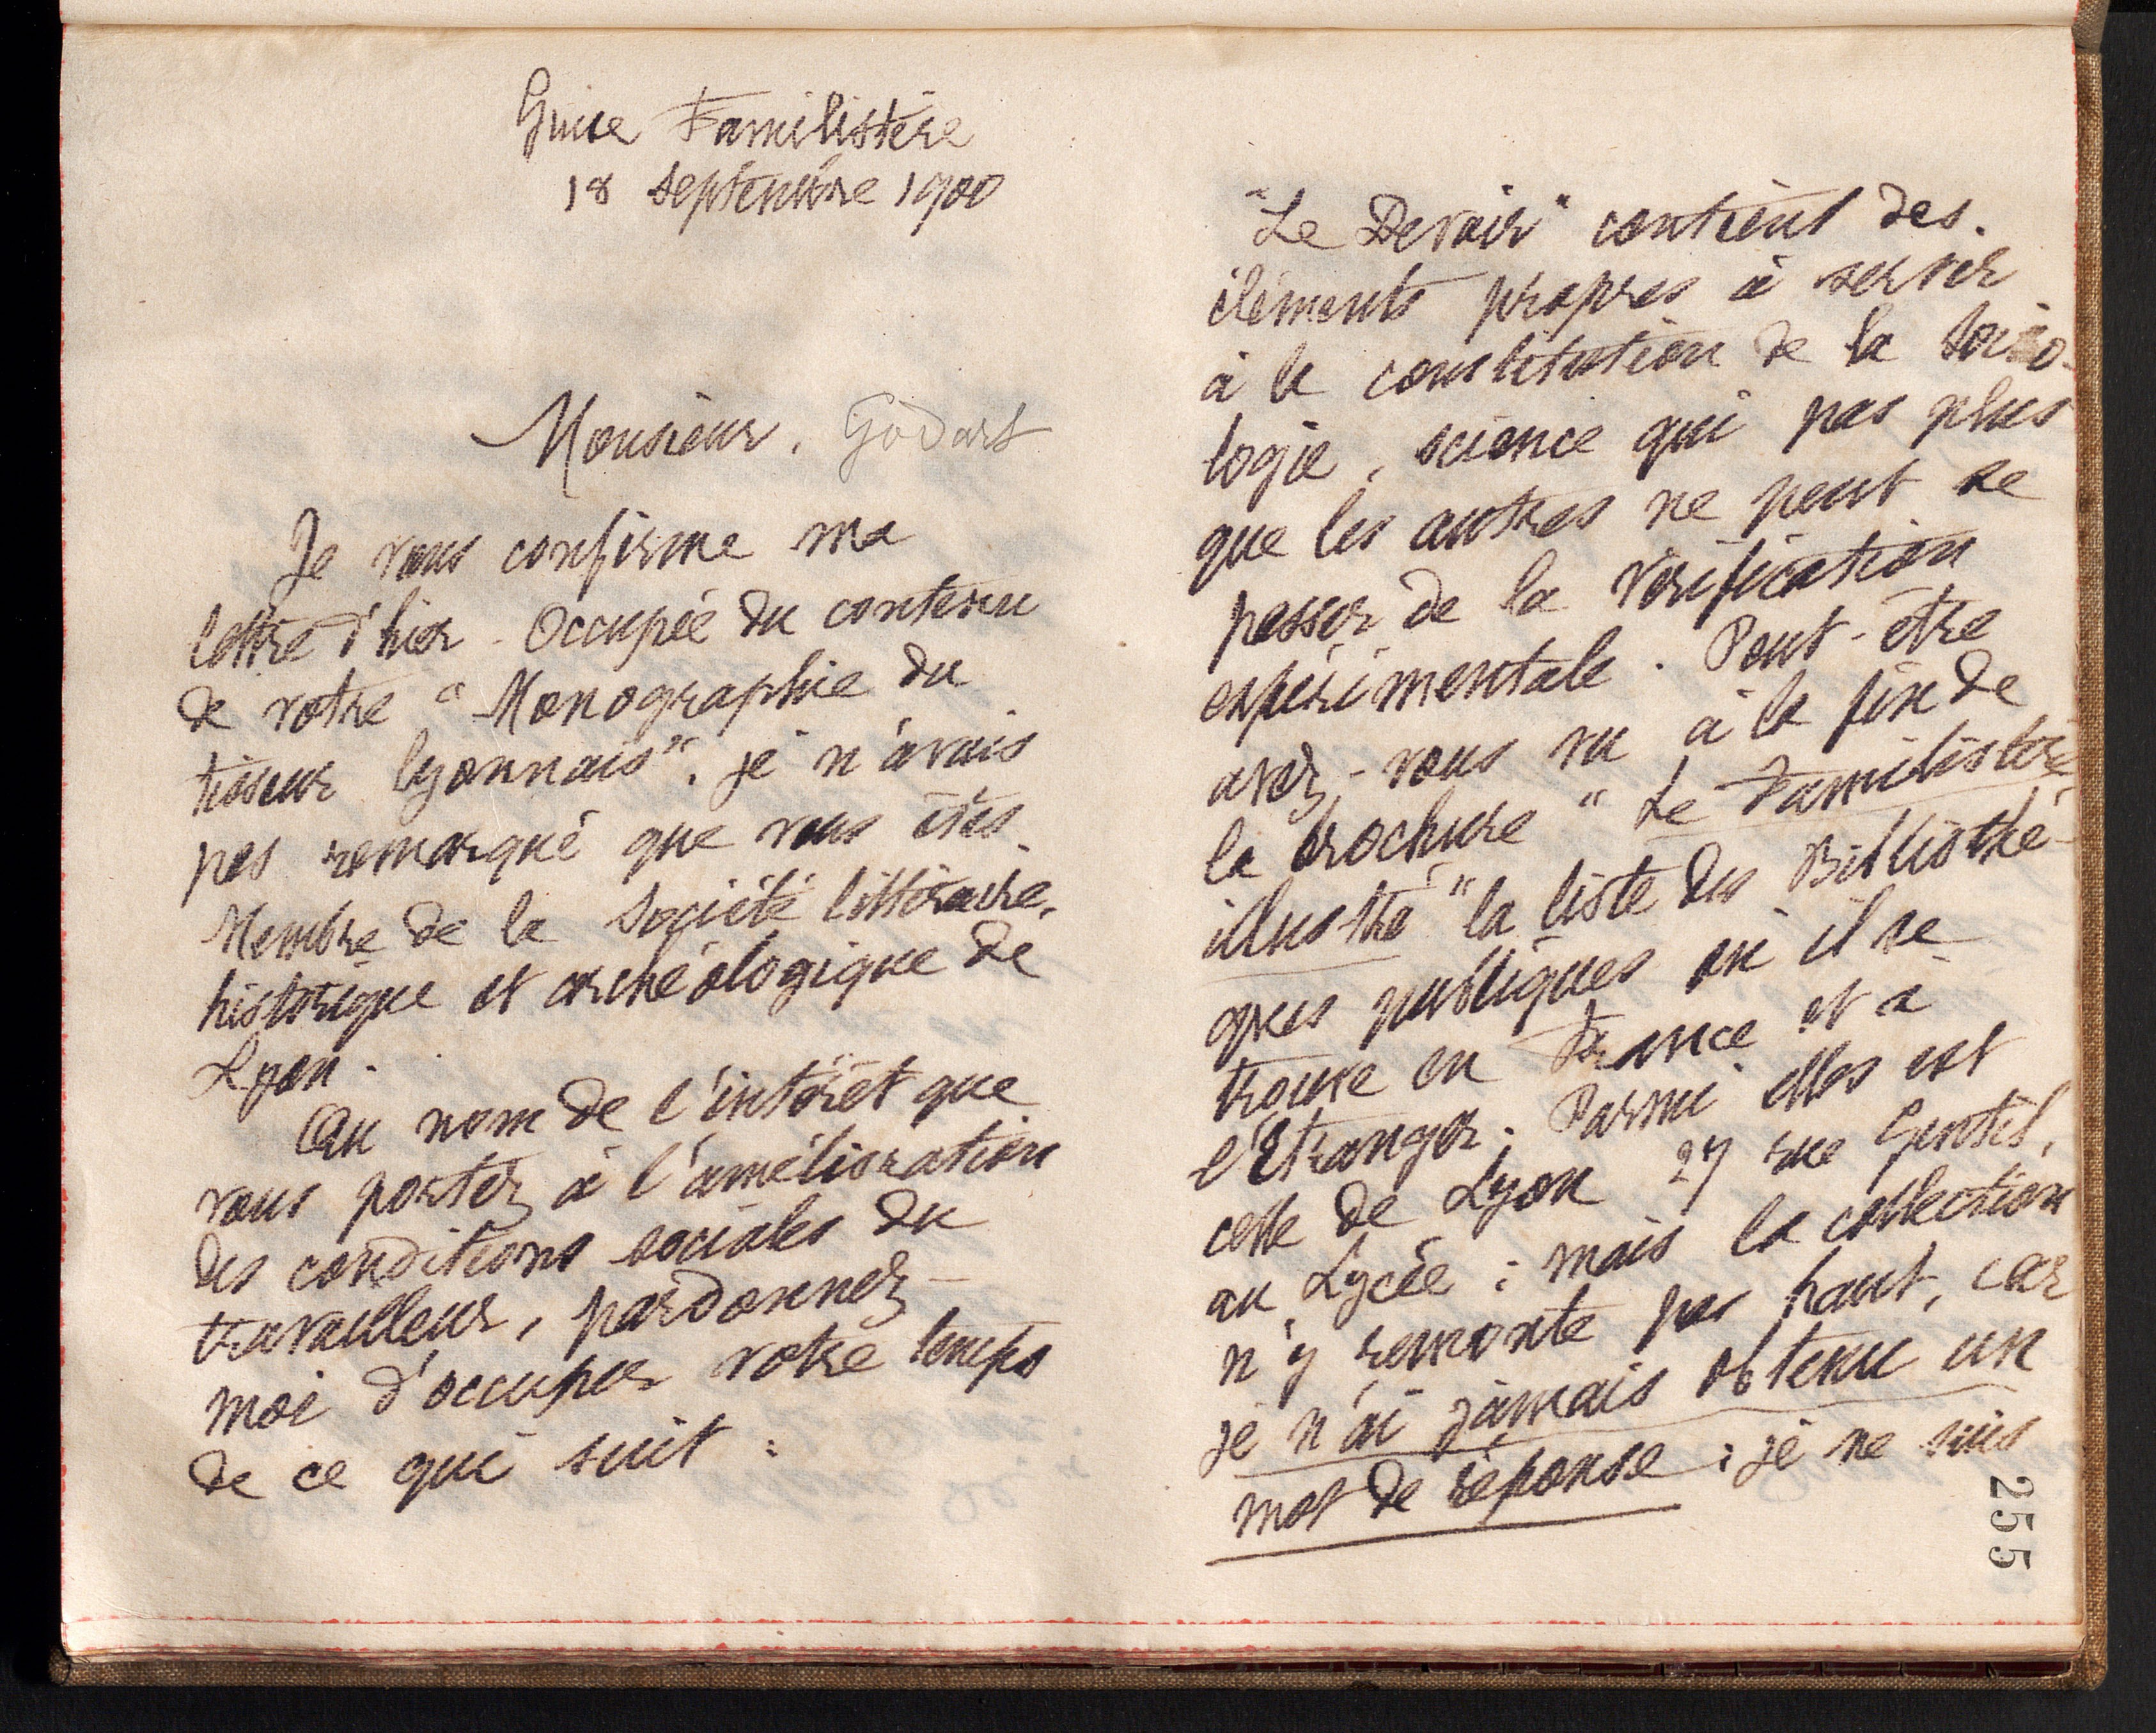 Guise Familistère
18 septembre 1900
Monsieur. Godart
Je vous confirme ma
lettre d'hier. Occupée du contenu
de votre "Monographie du
tisseur lyonnais", je n'avais
pas remarqué que vous êtes
Membre de la Société littéraire,
historique et archéologique de
Lyon.
Au nom de l'intérêt que
vous portez à l'amélioration
des conditions sociales du
travailleur, pardonnez-
moi d'occuper votre temps
de ce qui suit :
"Le Devoir" contient des
éléments propres à servir
à la constitution de la socio-
logie, science qui pas plus
que les autres ne peut se
passer de la vérification
expérimentale. Peut-être
avez-vous vu à la fin de
la brochure "Le Familistère
illustré" la liste des Bibliothè-
ques publiques où il se
trouve en France et à
l'Etranger. Parmi elles est
celle de Lyon 27 rue Gentil,
au Lycée ; mais la collection
n'y remonte pas haut, car
je n'ai jamais obtenu un
mot de réponse ; je ne suis
255